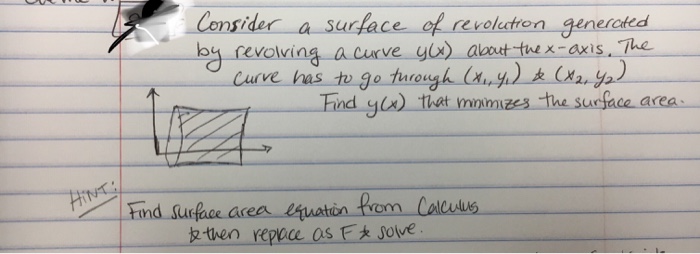 Consider a surface of revolution generated
by revolving a curve y(x) about the x-axis. The
curve has to go through (x₁, y₁) & (x₂, y₂)
Find y(x) that minimizes the surface area.
HINT:
Find surface area equation from Calculus
& then replace as F & solve.